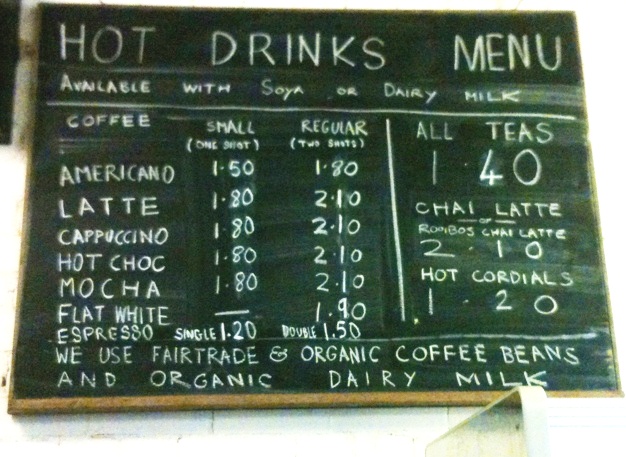 HOT DRINKS MENU
AVAILABLE WITH Soya OR DAIRY MILK
COFFEE SMALL REGULAR
(ONE SHOT) (TWO SHOTS)
AMERICANO 1.50 1.80
LATTE 1.80 2.10
CAPPUCCINO 1.80 2.10
HOT CHOC 1.80 2.10
MOCHA 1.80 2.10
FLAT WHITE — 1.90
ESPRESSO SINGLE 1.20 DOUBLE 1.50
ALL TEAS
1.40
CHAI LATTE
OR
ROOIBOS CHAI LATTE
2.10
HOT CORDIALS
1.20
WE USE FAIRTRADE & ORGANIC COFFEE BEANS
AND ORGANIC DAIRY MILK